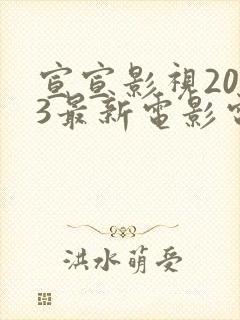 宣宣影視20
3最新電影電
洪水萌受